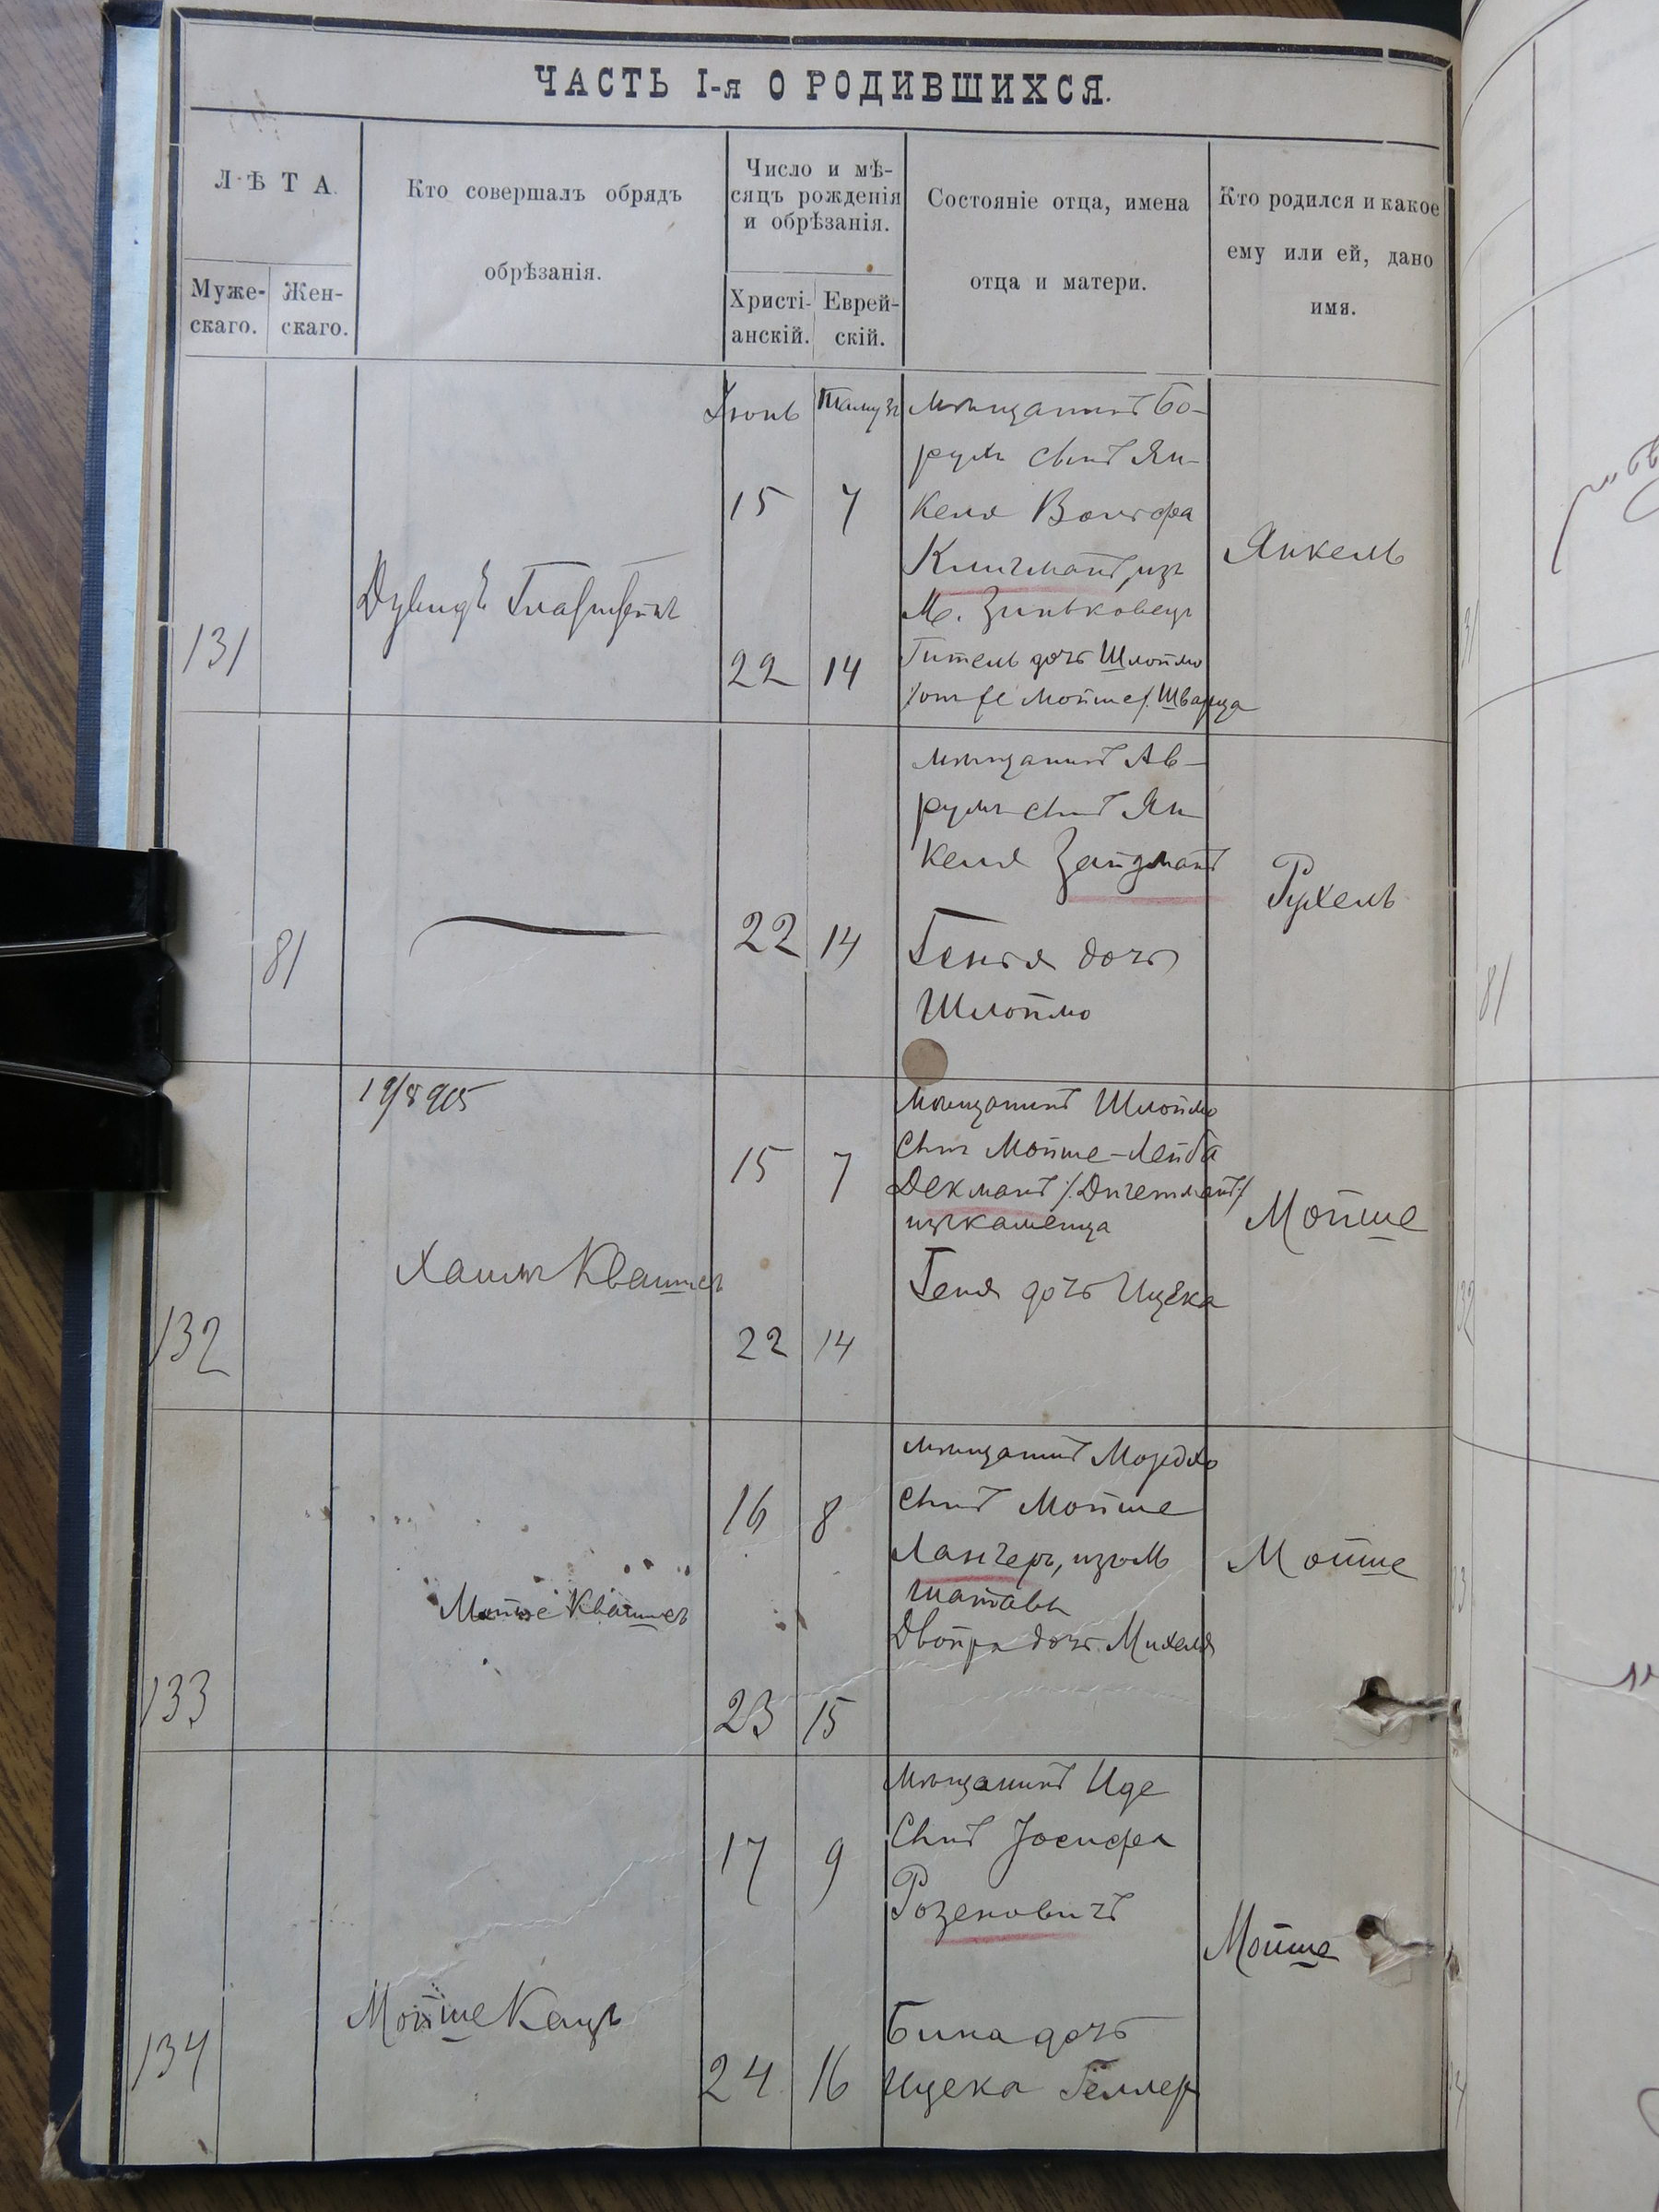 ЧАСТЬ I-я О РОДИВШИХСЯ.
ЛѢТА.
Муже-
скаго.
Жен-
скаго.
Кто совершалъ обрядъ
обрѣзанія.
Число и мѣ-
сяцъ рожденія
и обрѣзанія.
Христі-
анскій.
Еврей-
скій.
Состояніе отца, имена
отца и матери.
Кто родился и какое
ему или ей, дано
имя.
131
Іюнь
Тамузъ
15
7
22
14
мѣщанинъ Бо-
рухъ сынъ Ян-
келя Вольфа
Клигманъ, изъ
М. Зиньковецъ
Гитель дочь Шлоймо
Мойше Шварца
Янкель
81
22
14
мѣщанинъ Ав-
румъ сынъ Ян-
келя Зайдманъ
Генья дочь
Шлоймо
Рухель
132
19/8 905
Хаимъ Квашнеръ
15
7
22
14
мѣщанинъ Шлоймо
сынъ Мойше-Лейба
Декманъ
изъ Каменца
Геня дочь Ицека
Мойше
133
Мойше Квашнеръ
16
8
23
15
мѣщанинъ Мордко
сынъ Мойше
Лангеръ, изъ М
Шатавы
Двойра дочь Михеля
Мойше
134
Мойше Кацъ
17
9
24
16
мѣщанинъ Иде
сынъ Іосифа
Розеновичъ
Бина дочь
Ицека Геллер
Мойше
81